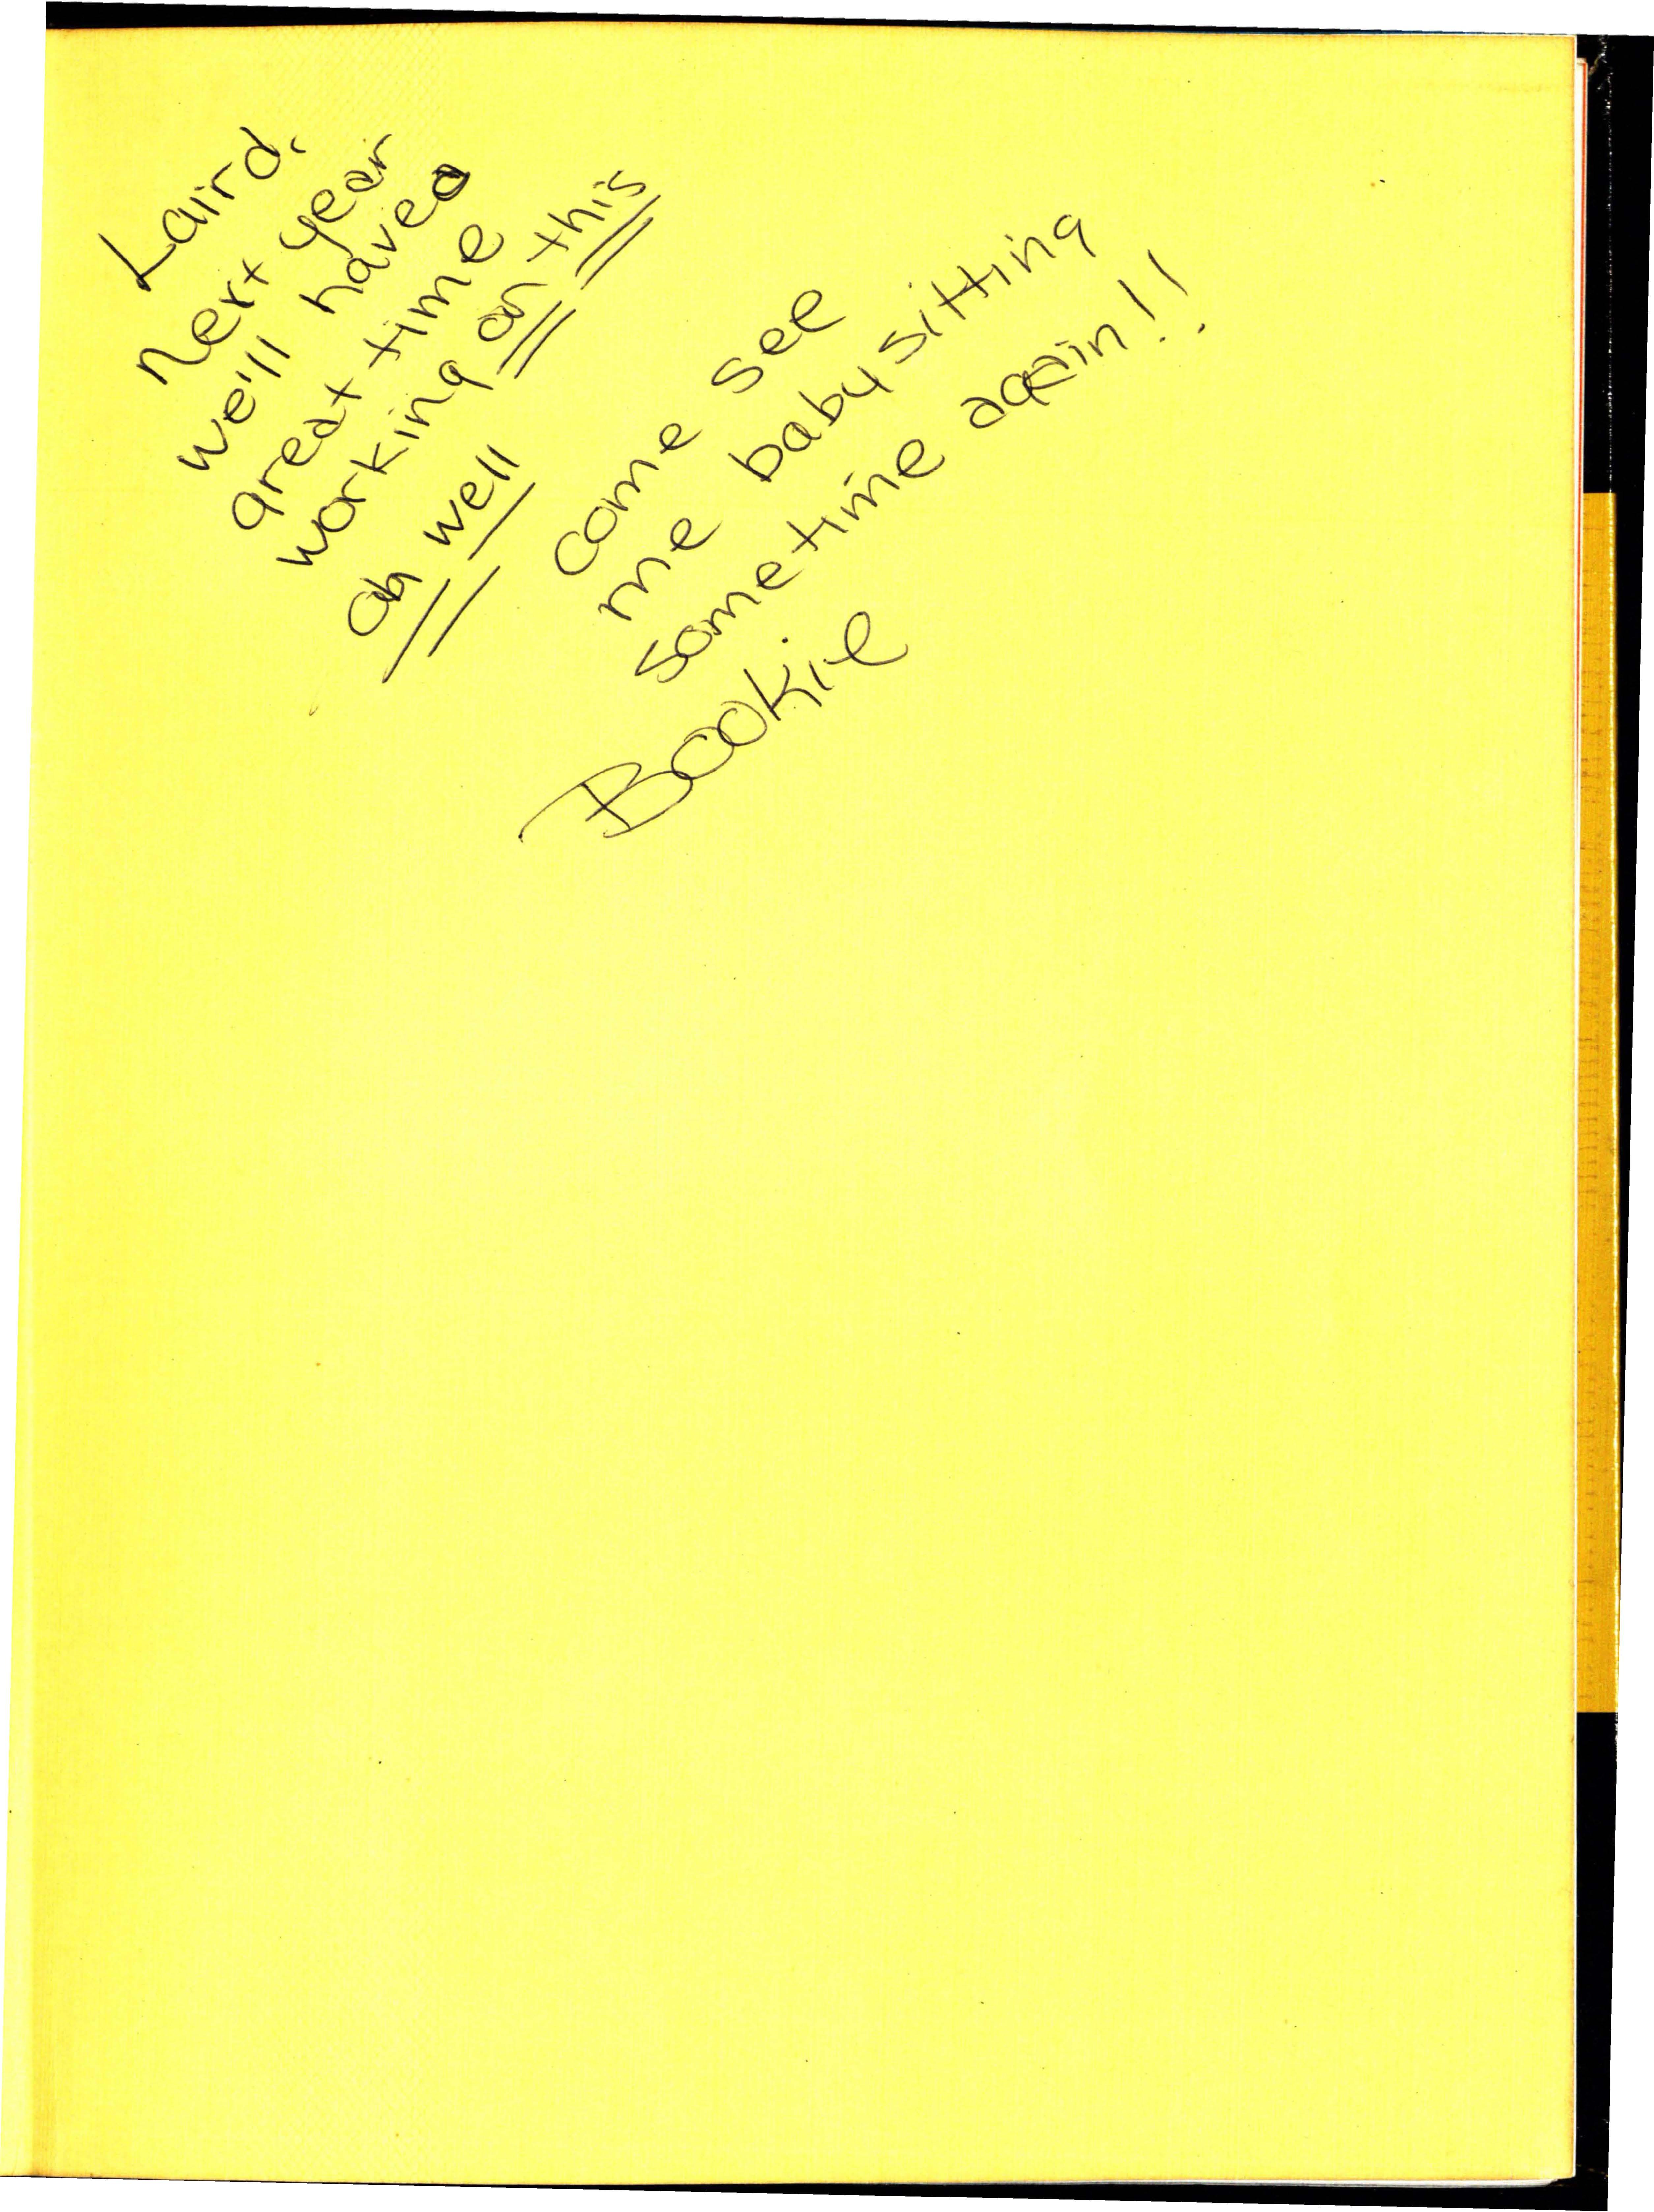 Laird,
next year
we'll have a
great time
working on this
oh well
come see
me babysitting
sometime again!!
Bookie